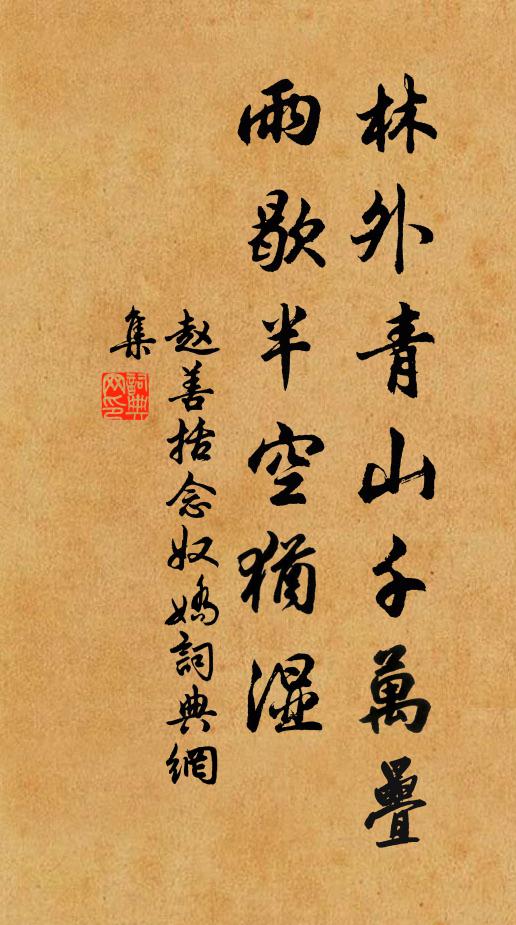 林外青山千萬疊
雨歇半空猶濕
赵善括念奴嬌詞典網
集
詞典
网印